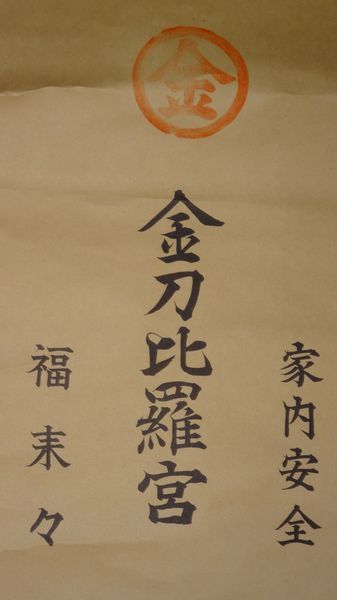 金
家内安全
金刀比羅宮
福来々